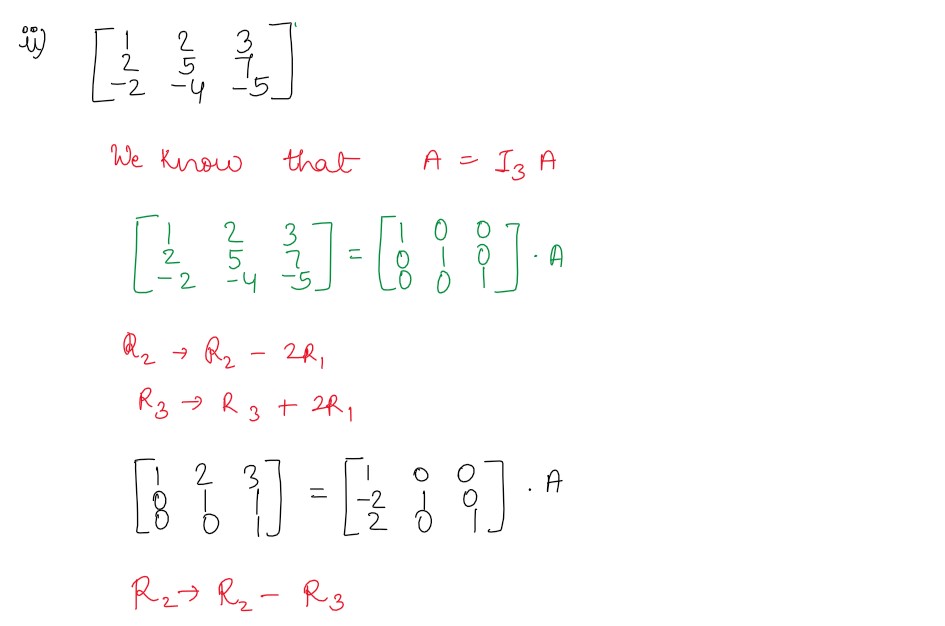 ii) [ 1 2 3
2 5 7
-2 -4 -5 ]
We know that A = I₃ A
[ 1 2 3
2 5 7
-2 -4 -5 ] = [ 1 0 0
0 1 0
0 0 1 ] . A
R₂ → R₂ - 2R₁
R₃ → R₃ + 2R₁
[ 1 2 3
0 1 1
0 0 1 ] = [ 1 0 0
-2 1 0
2 0 1 ] . A
R₂ → R₂ - R₃